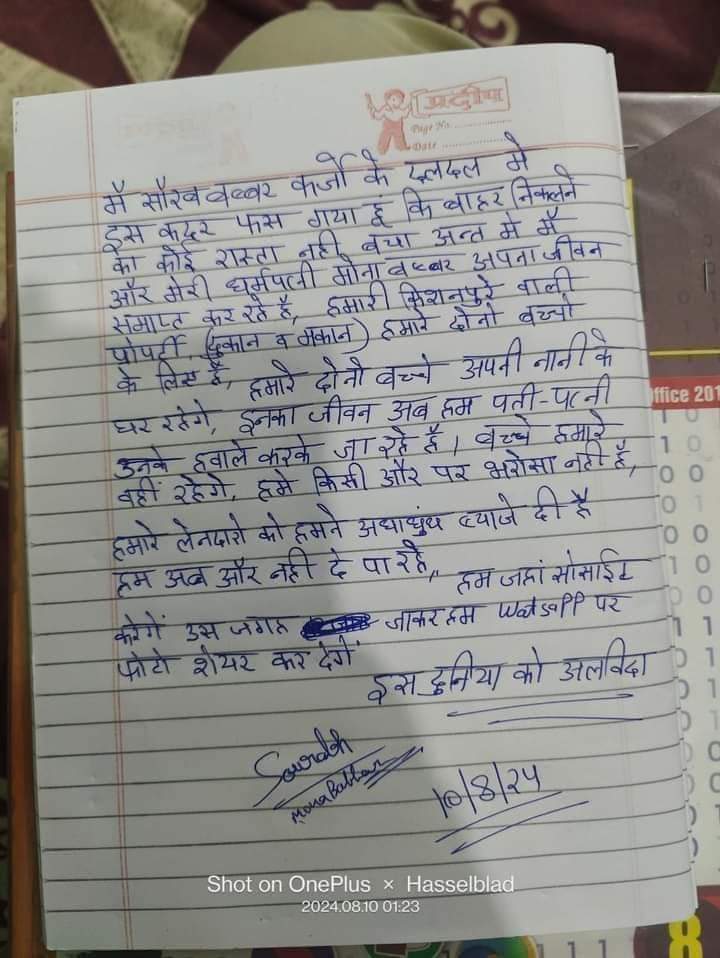 प्रदीप
Page No. ..................
Date ..................
मैं सौरव बब्बर कर्जो के दलदल मे
इस कदर फस गया हूं कि बाहर निकलने
का कोई रास्ता नही बचा अन्त मे मैं
और मेरी धर्मपत्नी मोना बब्बर अपना जीवन
समाप्त कर रहे हैं, हमारी किशनपुरे वाली
प्रोपर्टी, (दुकान व मकान) हमारे दोनो बच्चो
के लिए है, हमारे दोनो बच्चे अपनी नानी के
घर रहेगे, इनका जीवन अब हम पती-पत्नी
उनके हवाले करके जा रहे है। बच्चे हमारे
वहीं रहेगे, हमे किसी और पर भरोसा नही है,
हमारे लेनदारो को हमने अंधाधुंध ब्याजे दी है
हम अब और नही दे पा रहे, हम जहां सोसाईट
करेगें उस जगह जाकर हम Watsapp पर
फोटो शेयर कर देगें
इस दुनिया को अलविदा
Sourabh
Mona Babbar
10/8/24
ffice 201
Shot on OnePlus × Hasselblad
2024.08.10 01:23
8